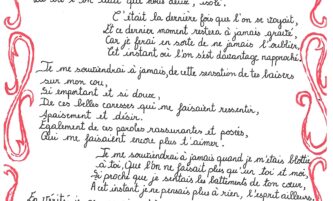 que nous deux, isolé.
C'était la dernière fois que l'on se voyait,
Et ce dernier moment restera à jamais gravé,
Car je ferai en sorte de ne jamais l'oublier,
Cet instant où l'on s'est davantage rapproché.
Je me souviendrai à jamais, de cette sensation de tes baisers
sur mon cou,
Si important et si doux,
De ces belles caresses qui me faisaient ressentir,
Apaisement et désir.
Également de ces paroles rassurantes et posées,
Qui me faisaient encore plus t'aimer.
Je me souviendrai à jamais quand je m'étais blottie
à toi, Que l'on ne faisait plus qu'un toi et moi,
Si proche que je sentais les battements de ton cœur,
A cet instant je ne pensais plus à rien, l'esprit ailleurs.
En vérité, je